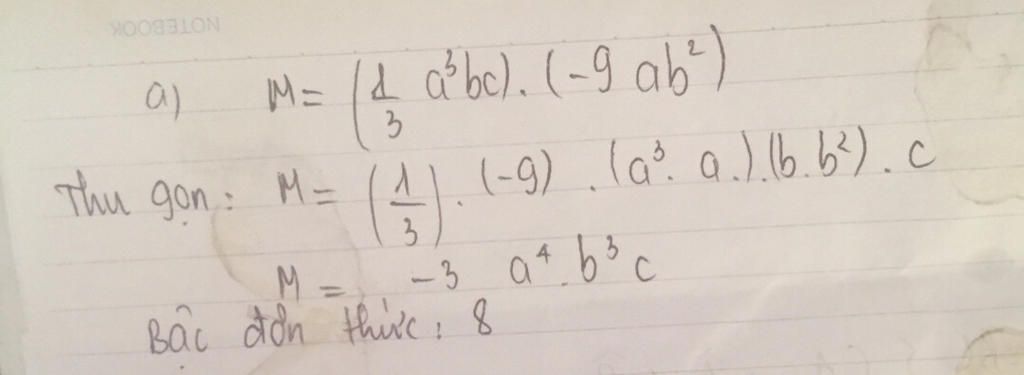 NOTEBOOK
a) M = (1/3 a³bc). (-9 ab²)
Thu gọn: M = (1/3). (-9) . (a³. a.).(b.b²). c
M = -3 a⁴.b³c
Bậc đơn thức: 8